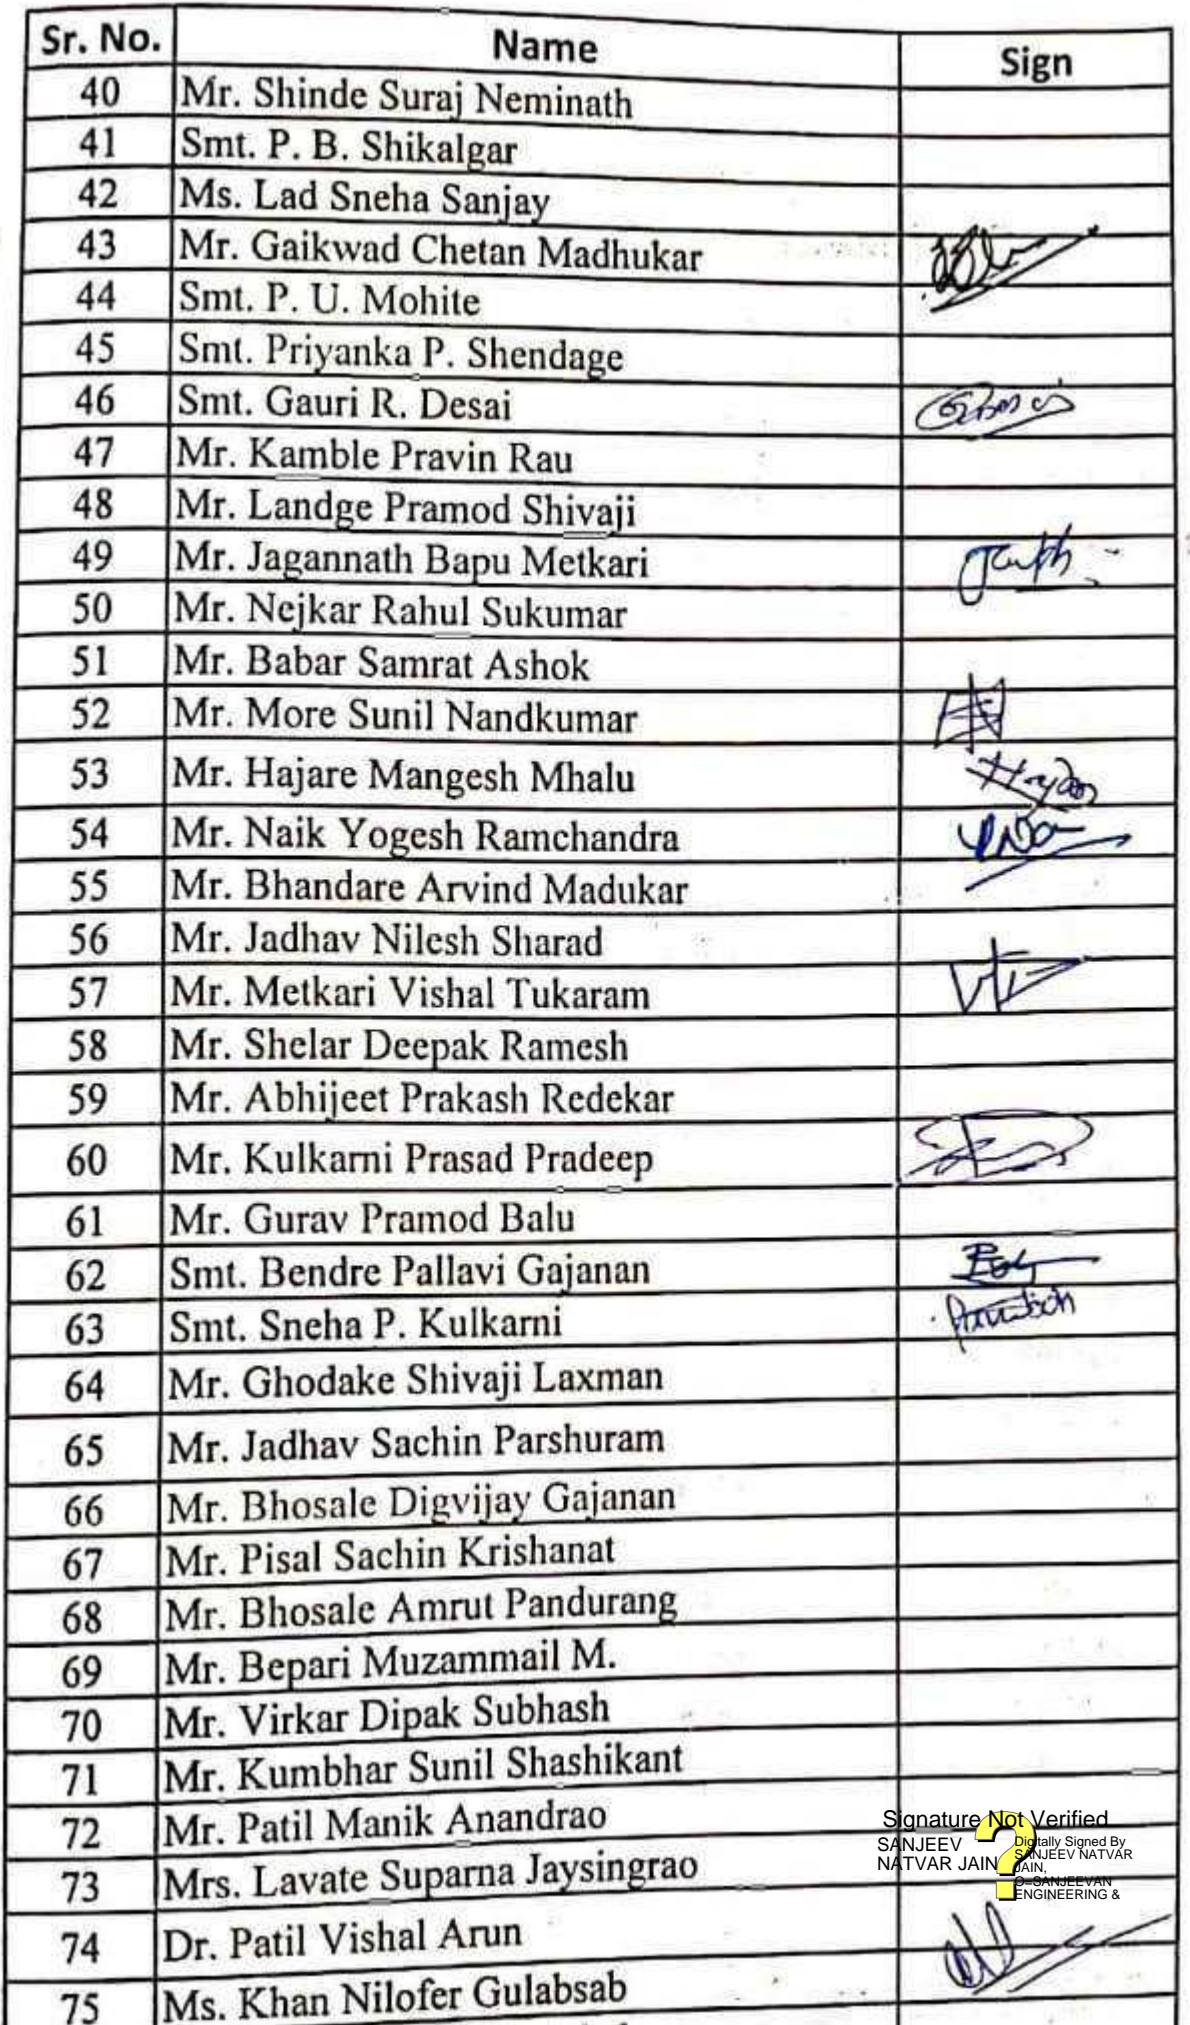 Sr. No. Name Sign
40 Mr. Shinde Suraj Neminath
41 Smt. P. B. Shikalgar
42 Ms. Lad Sneha Sanjay
43 Mr. Gaikwad Chetan Madhukar
44 Smt. P. U. Mohite
45 Smt. Priyanka P. Shendage
46 Smt. Gauri R. Desai
47 Mr. Kamble Pravin Rau
48 Mr. Landge Pramod Shivaji
49 Mr. Jagannath Bapu Metkari
50 Mr. Nejkar Rahul Sukumar
51 Mr. Babar Samrat Ashok
52 Mr. More Sunil Nandkumar
53 Mr. Hajare Mangesh Mhalu
54 Mr. Naik Yogesh Ramchandra
55 Mr. Bhandare Arvind Madukar
56 Mr. Jadhav Nilesh Sharad
57 Mr. Metkari Vishal Tukaram
58 Mr. Shelar Deepak Ramesh
59 Mr. Abhijeet Prakash Redekar
60 Mr. Kulkarni Prasad Pradeep
61 Mr. Gurav Pramod Balu
62 Smt. Bendre Pallavi Gajanan
63 Smt. Sneha P. Kulkarni
64 Mr. Ghodake Shivaji Laxman
65 Mr. Jadhav Sachin Parshuram
66 Mr. Bhosale Digvijay Gajanan
67 Mr. Pisal Sachin Krishanat
68 Mr. Bhosale Amrut Pandurang
69 Mr. Bepari Muzammail M.
70 Mr. Virkar Dipak Subhash
71 Mr. Kumbhar Sunil Shashikant
72 Mr. Patil Manik Anandrao
Signature Not Verified
SANJEEV
NATVAR JAIN
Digitally Signed By
SANJEEV NATVAR
JAIN,
O=SANJEEVAN
ENGINEERING &
73 Mrs. Lavate Suparna Jaysingrao
74 Dr. Patil Vishal Arun
75 Ms. Khan Nilofer Gulabsab